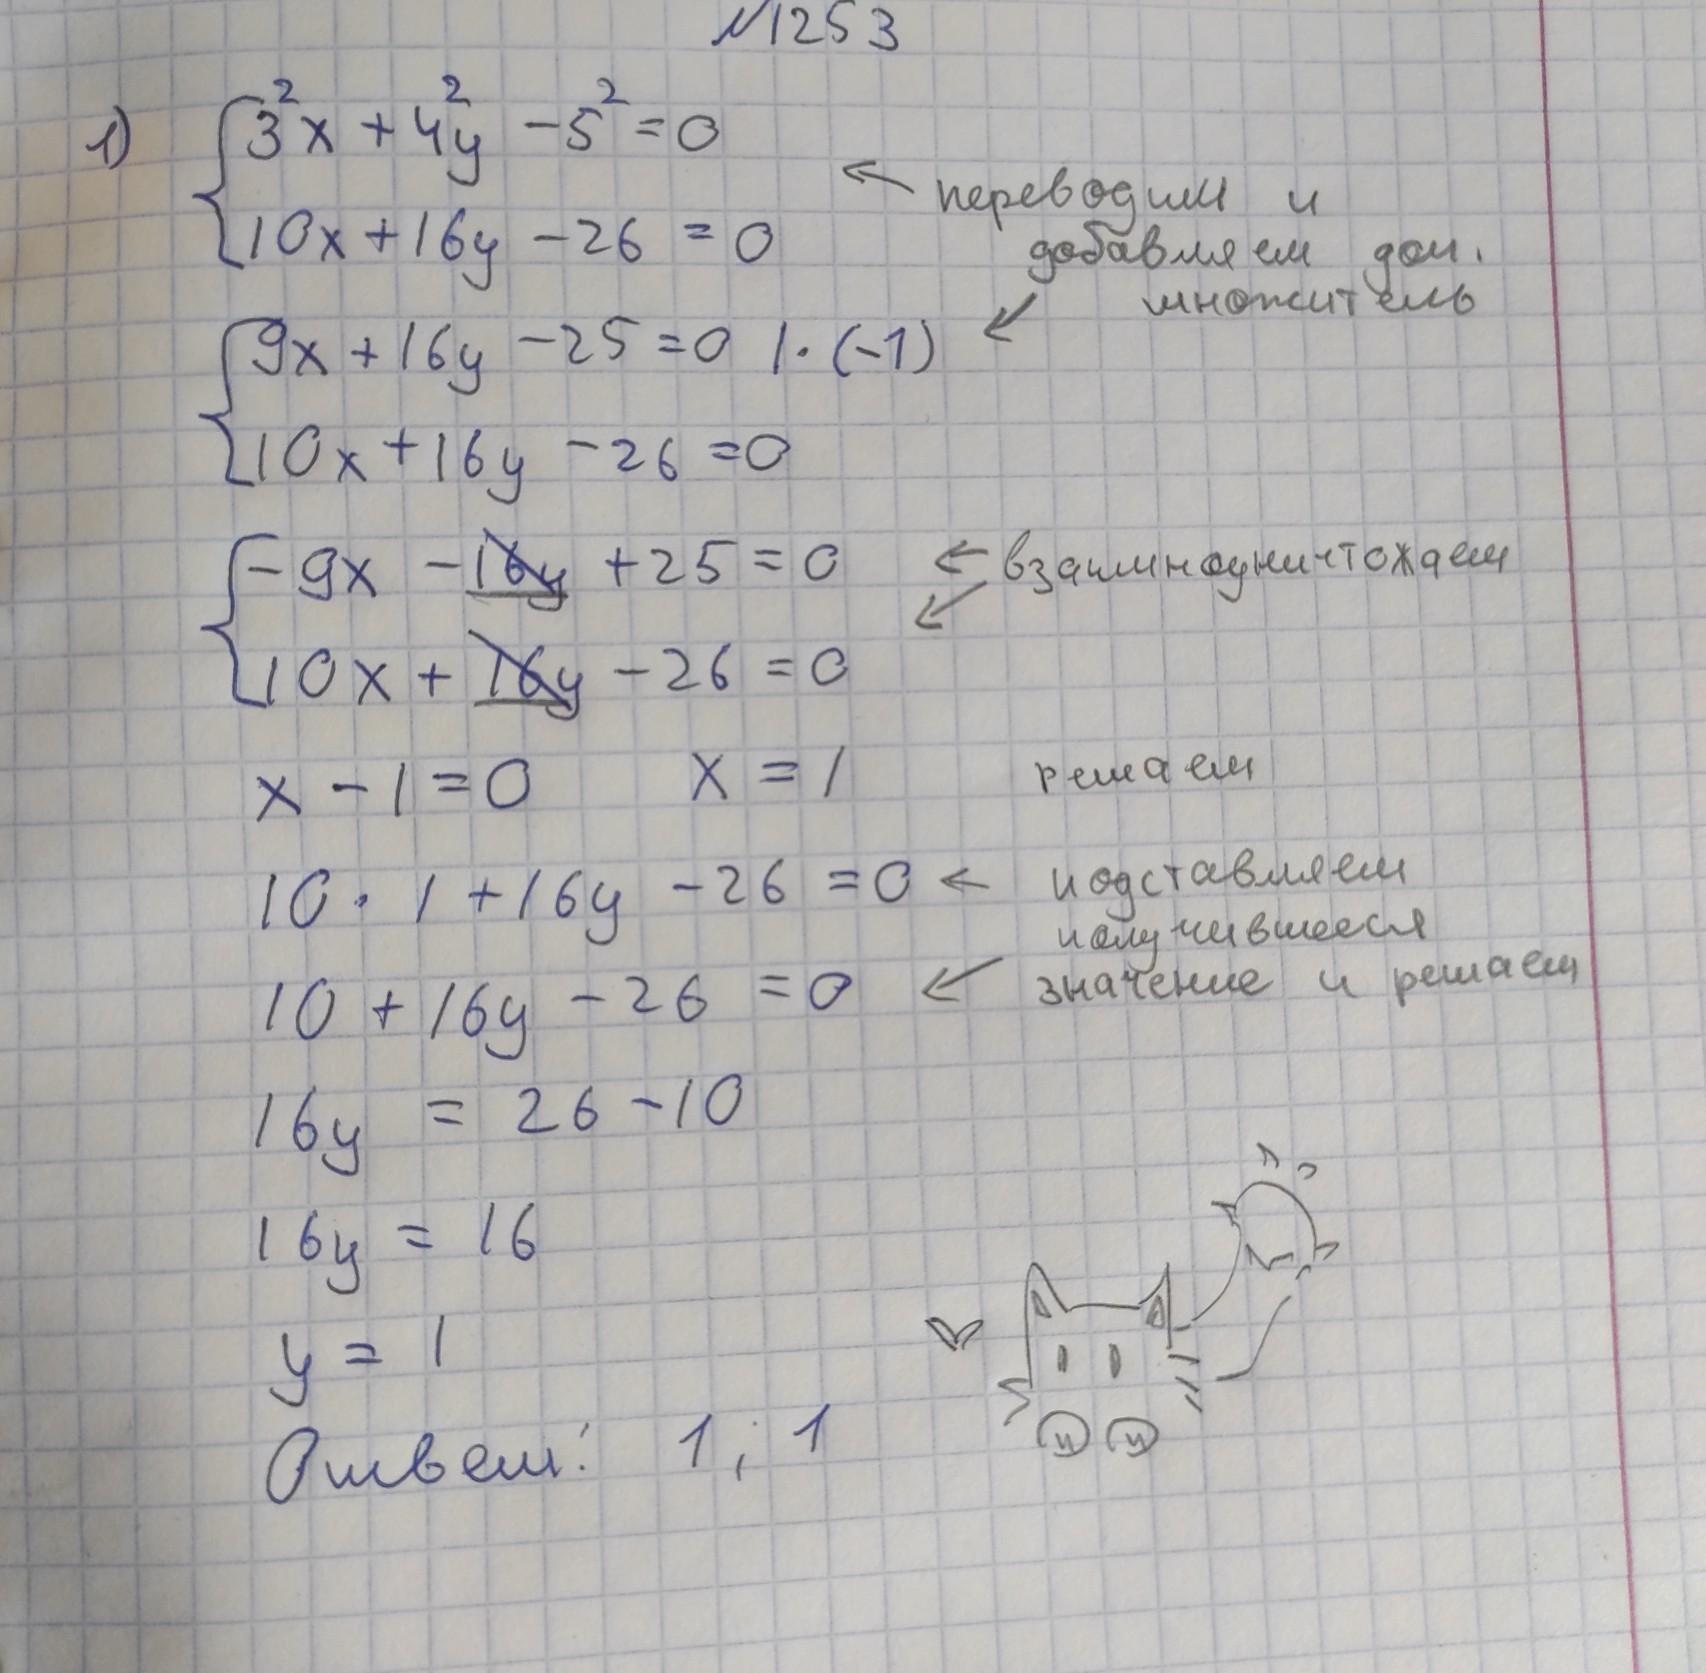 №1253
1) 3²x + 4²y - 5² = 0
10x + 16y - 26 = 0
← переводим и
добавляем доп.
множитель
9x + 16y - 25 = 0 | · (-1)
10x + 16y - 26 = 0
-9x - 16y + 25 = 0 ← взаимноуничтожаем
10x + 16y - 26 = 0
x - 1 = 0 x = 1 решаем
10 · 1 + 16y - 26 = 0 ← подставляем
получившееся
10 + 16y - 26 = 0 ← значение и решаем
16y = 26 - 10
16y = 16
y = 1
Ответ: 1; 1